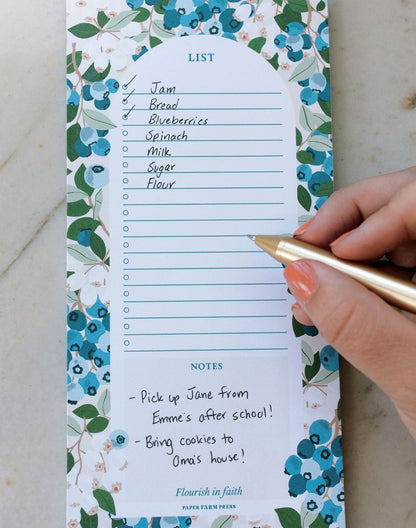 LIST
Jam
Bread
Blueberries
Spinach
Milk
Sugar
Flour
NOTES
- Pick up Jane from
Emme's after school!
- Bring cookies to
Oma's house!
Flourish in faith
PAPER FARM PRESS